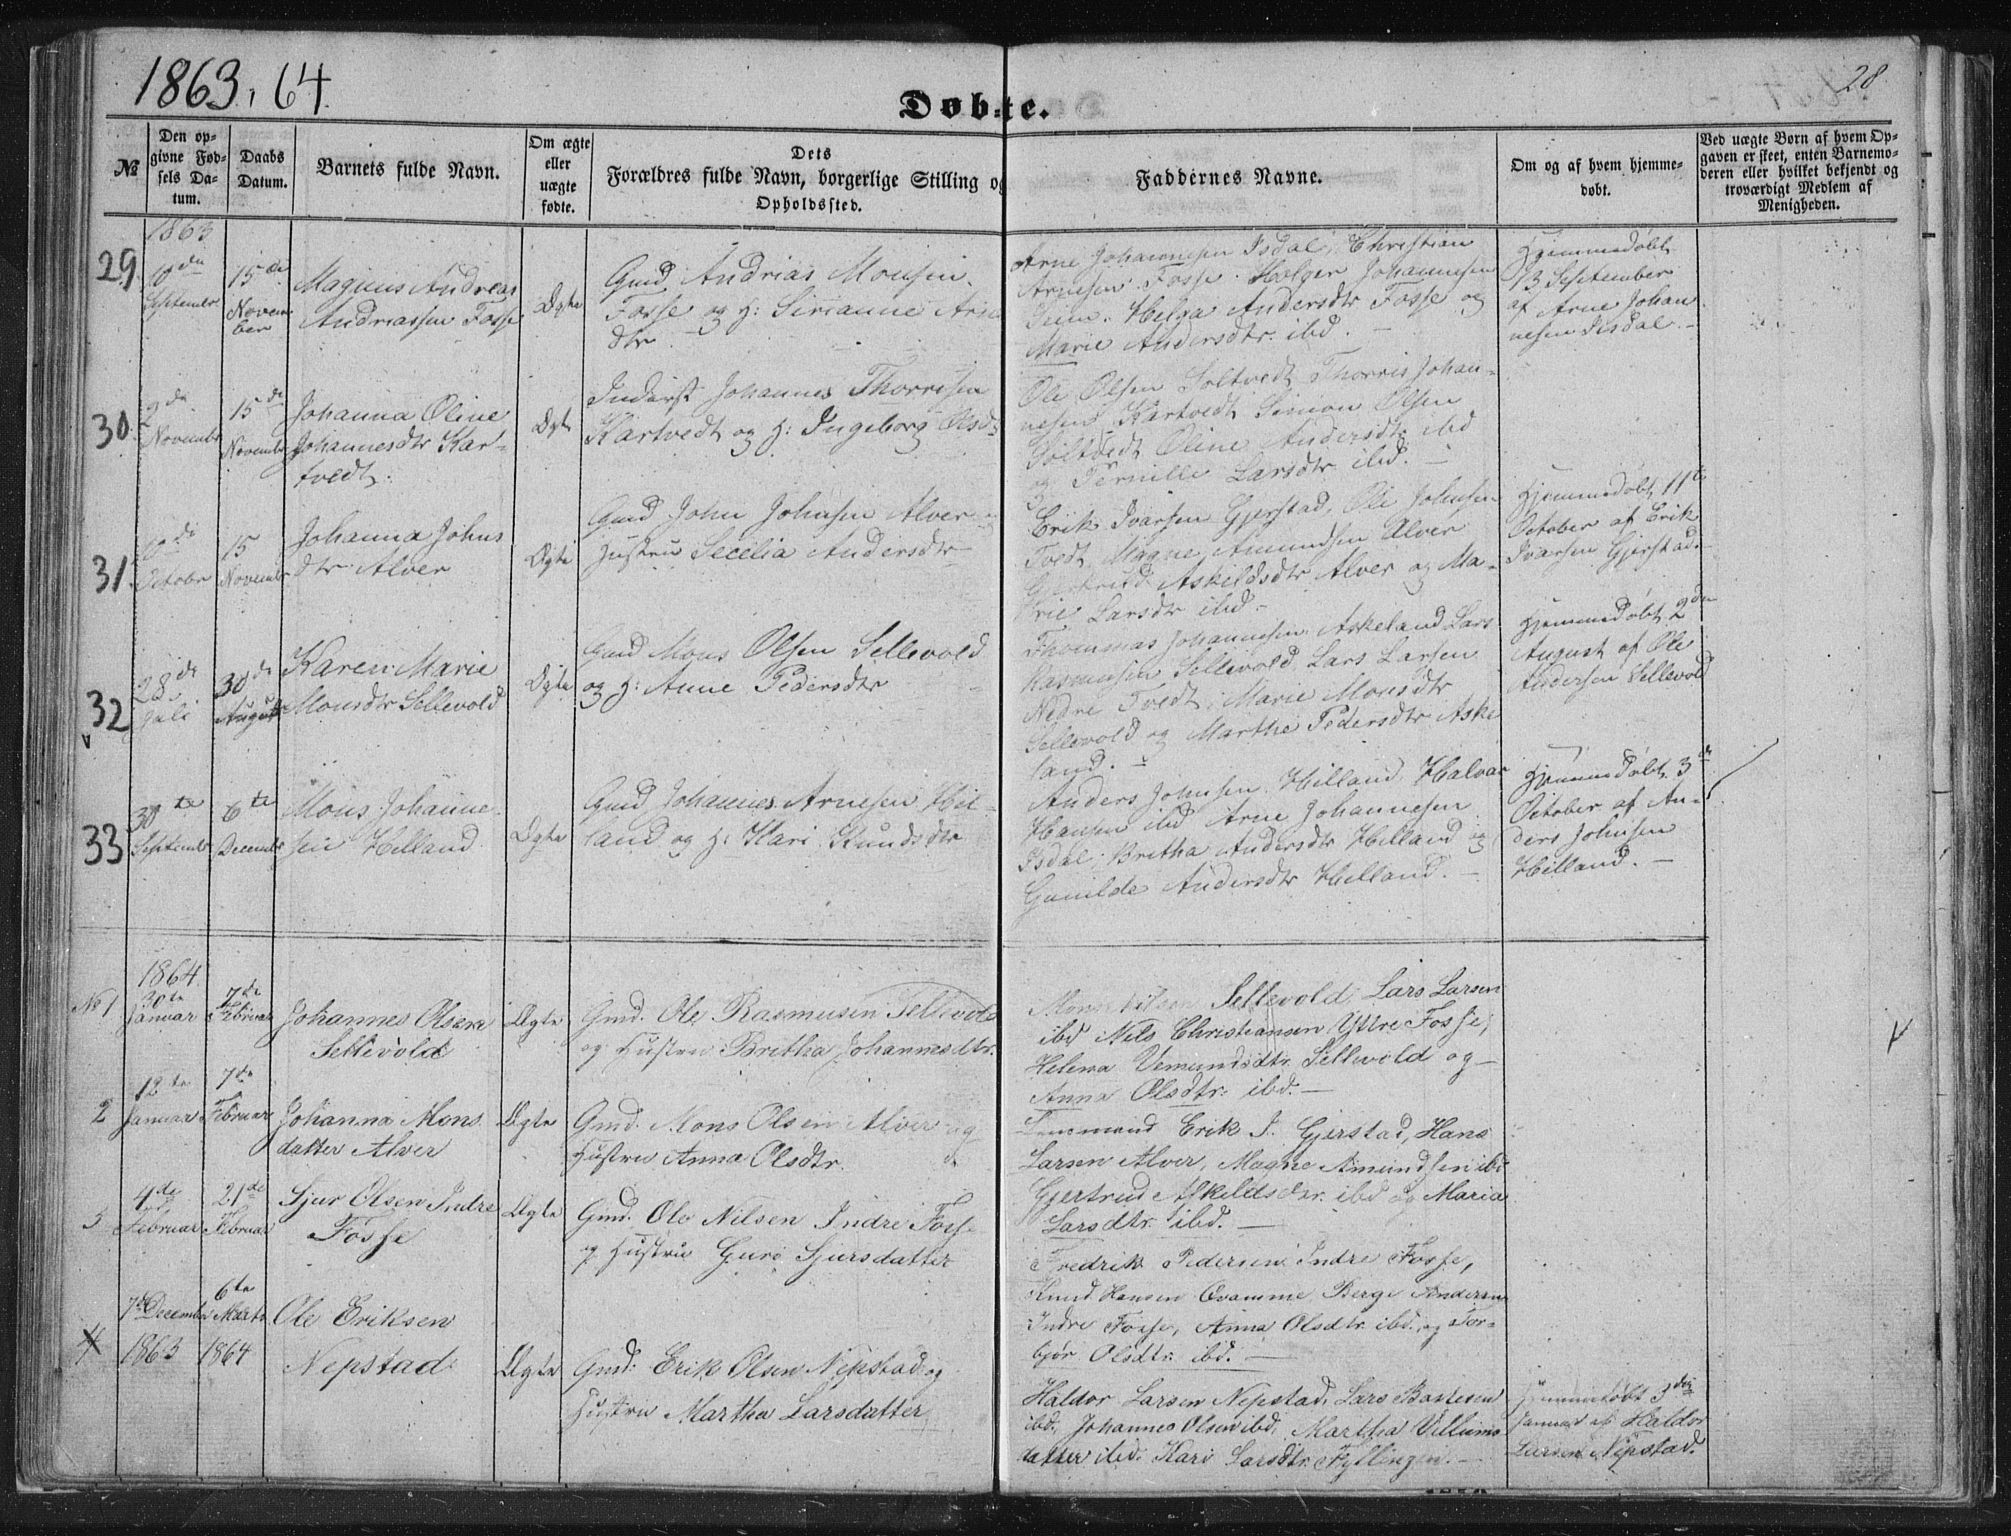 1863, 64.
28
Døbte.
№
Den op-
givne Fød-
sels Da-
tum.
Daabs
Datum.
Barnets fulde Navn.
Om ægte
eller
uægte
fødte.
Dets
Forældres fulde Navn, borgerlige Stilling og
Opholdssted.
Faddernes Navne.
Om og af hvem hjemme-
døbt.
Ved uægte Børn af hvem Op-
gaven er skeet, enten Barnemo-
deren eller hvilket bekjendt og
troværdigt Medlem af
Menigheden.
1863
29.
September
15de
Novem-
ber
Magnus Andreas
Andriassen Fosse
Ægte
Gmd Andrias Monsen
Fosse og H: Sirianne Arne
dtr
Arne Johannesen Isdal, Christian
Arnesen Fosse. Holger Johannesen
Helga Andersdtr Fosse og
Marie Andersdtr ibd. -
Hjemmedøbt
13 September
af Arne Johan
nesen Isdal. -
30.
2den
November
15de
November
Johanna Oline
Johannesdtr Kar-
tvedt.
Ægte
Inderst Johannes Thorresen
Kartvedt og H: Ingeborg Olsd-
Ole Olsen Soltvedt, Thorris Johan-
nesen Kartvedt, Simon Olsen
Soltvedt Oline Andersdtr ibd
og Pernille Larsdtr ibd. -
31.
October
15
November
Johanna Johns
dtr Alver
Ægte
Gmd John Johnsen Alver og
Hustru Secilia Andersdtr
Erik Ivarsen Gjerstad, Ole Johnsen
Tvedt, Magne Amundsen Alver
Gjertrud Askildsdtr Alver og Ma-
rie Larsdtr ibd. -
Hjemmedøbt 11te
October af Erik
Ivarsen Gjerstad. -
32
28de
Juli
30de
August
Karen Marie
Monsdtr Sellevold
Ægte
Gmd Mons Olsen Sellevold
og H: Anne Pedersdtr
Thommas Johannesen Askeland, Lars
Rasmusen Sellevold, Lars Larsen
Nedre Tvedt, Marie Monsdtr
Sellevold og Marthe Pedersdtr Aske
land. -
Hjemmedøbt 2den
August af Ole
Andersen Sellevold
33
30te
September
6te
December
Mons Johanne-
sen Helland
Ægte
Gmd Johannes Arnesen Hel-
land og H: Kari Knudsdtr
Anders Johnsen Helland, Halvor
Hansen ibd Arne Johannesen
Isdal, Britha Andersdtr Helland og
Gunilde Andersdtr Helland. -
Hjemmedøbt 3de
October af An-
ders Johnsen
Helland. -
1864.
№ 1
30te
Januar
7de
Februar
Johannes Olsen
Sellevold
Ægte
Gmd. Ole Rasmusen Sellevold
og Hustru Britha Johannesdtr.
Sellevold, Lars Larsen
ibd Nils Christiansen Yttre Fosse,
Helena Vemundsdtr. Sellevold og
Anna Olsdtr. ibd. -
2
12te
Januar
7de
Februar
Johanna Mons
datter Alver
Ægte
Gmd. Mons Olsen Alver og
Hustru Anna Olsdtr.
Lensmand Erik I. Gjerstad, Hans
Larsen Alver, Magne Amundsen ibd
Gjertrud Askeldsdtr. ibd og Maria
Larsdtr. ibd. -
3
4de
Februar
21de
Februar
Sjur Olsen Indre
Fosse
Ægte
Gmd. Ole Nilsen Indre Fosse
og Hustru Guro Sjursdatter
Fredrik Pedersen Indre Fosse,
Knud Hansen Qvamme Berge Andersen
Indre Fosse, Anna Olsdtr. ibd. og Tor-
bjør Olsdtr. ibd. -
4
7de December
1863
6te
Marts
1864
Ole Eriksen
Nepstad
Ægte
Gmd: Erik Olsen Nepstad og
Hustru Martha Larsdatter
Haldor Larsen Nepstad, Lars Bastesen
ibd. Johannes Olsen ibd, Martha Villums
datter ibd. Kari Larsdtr. Fyllingen. -
Hjemmedøbt 3die
Januar af Haldor
Larsen Nepstad.